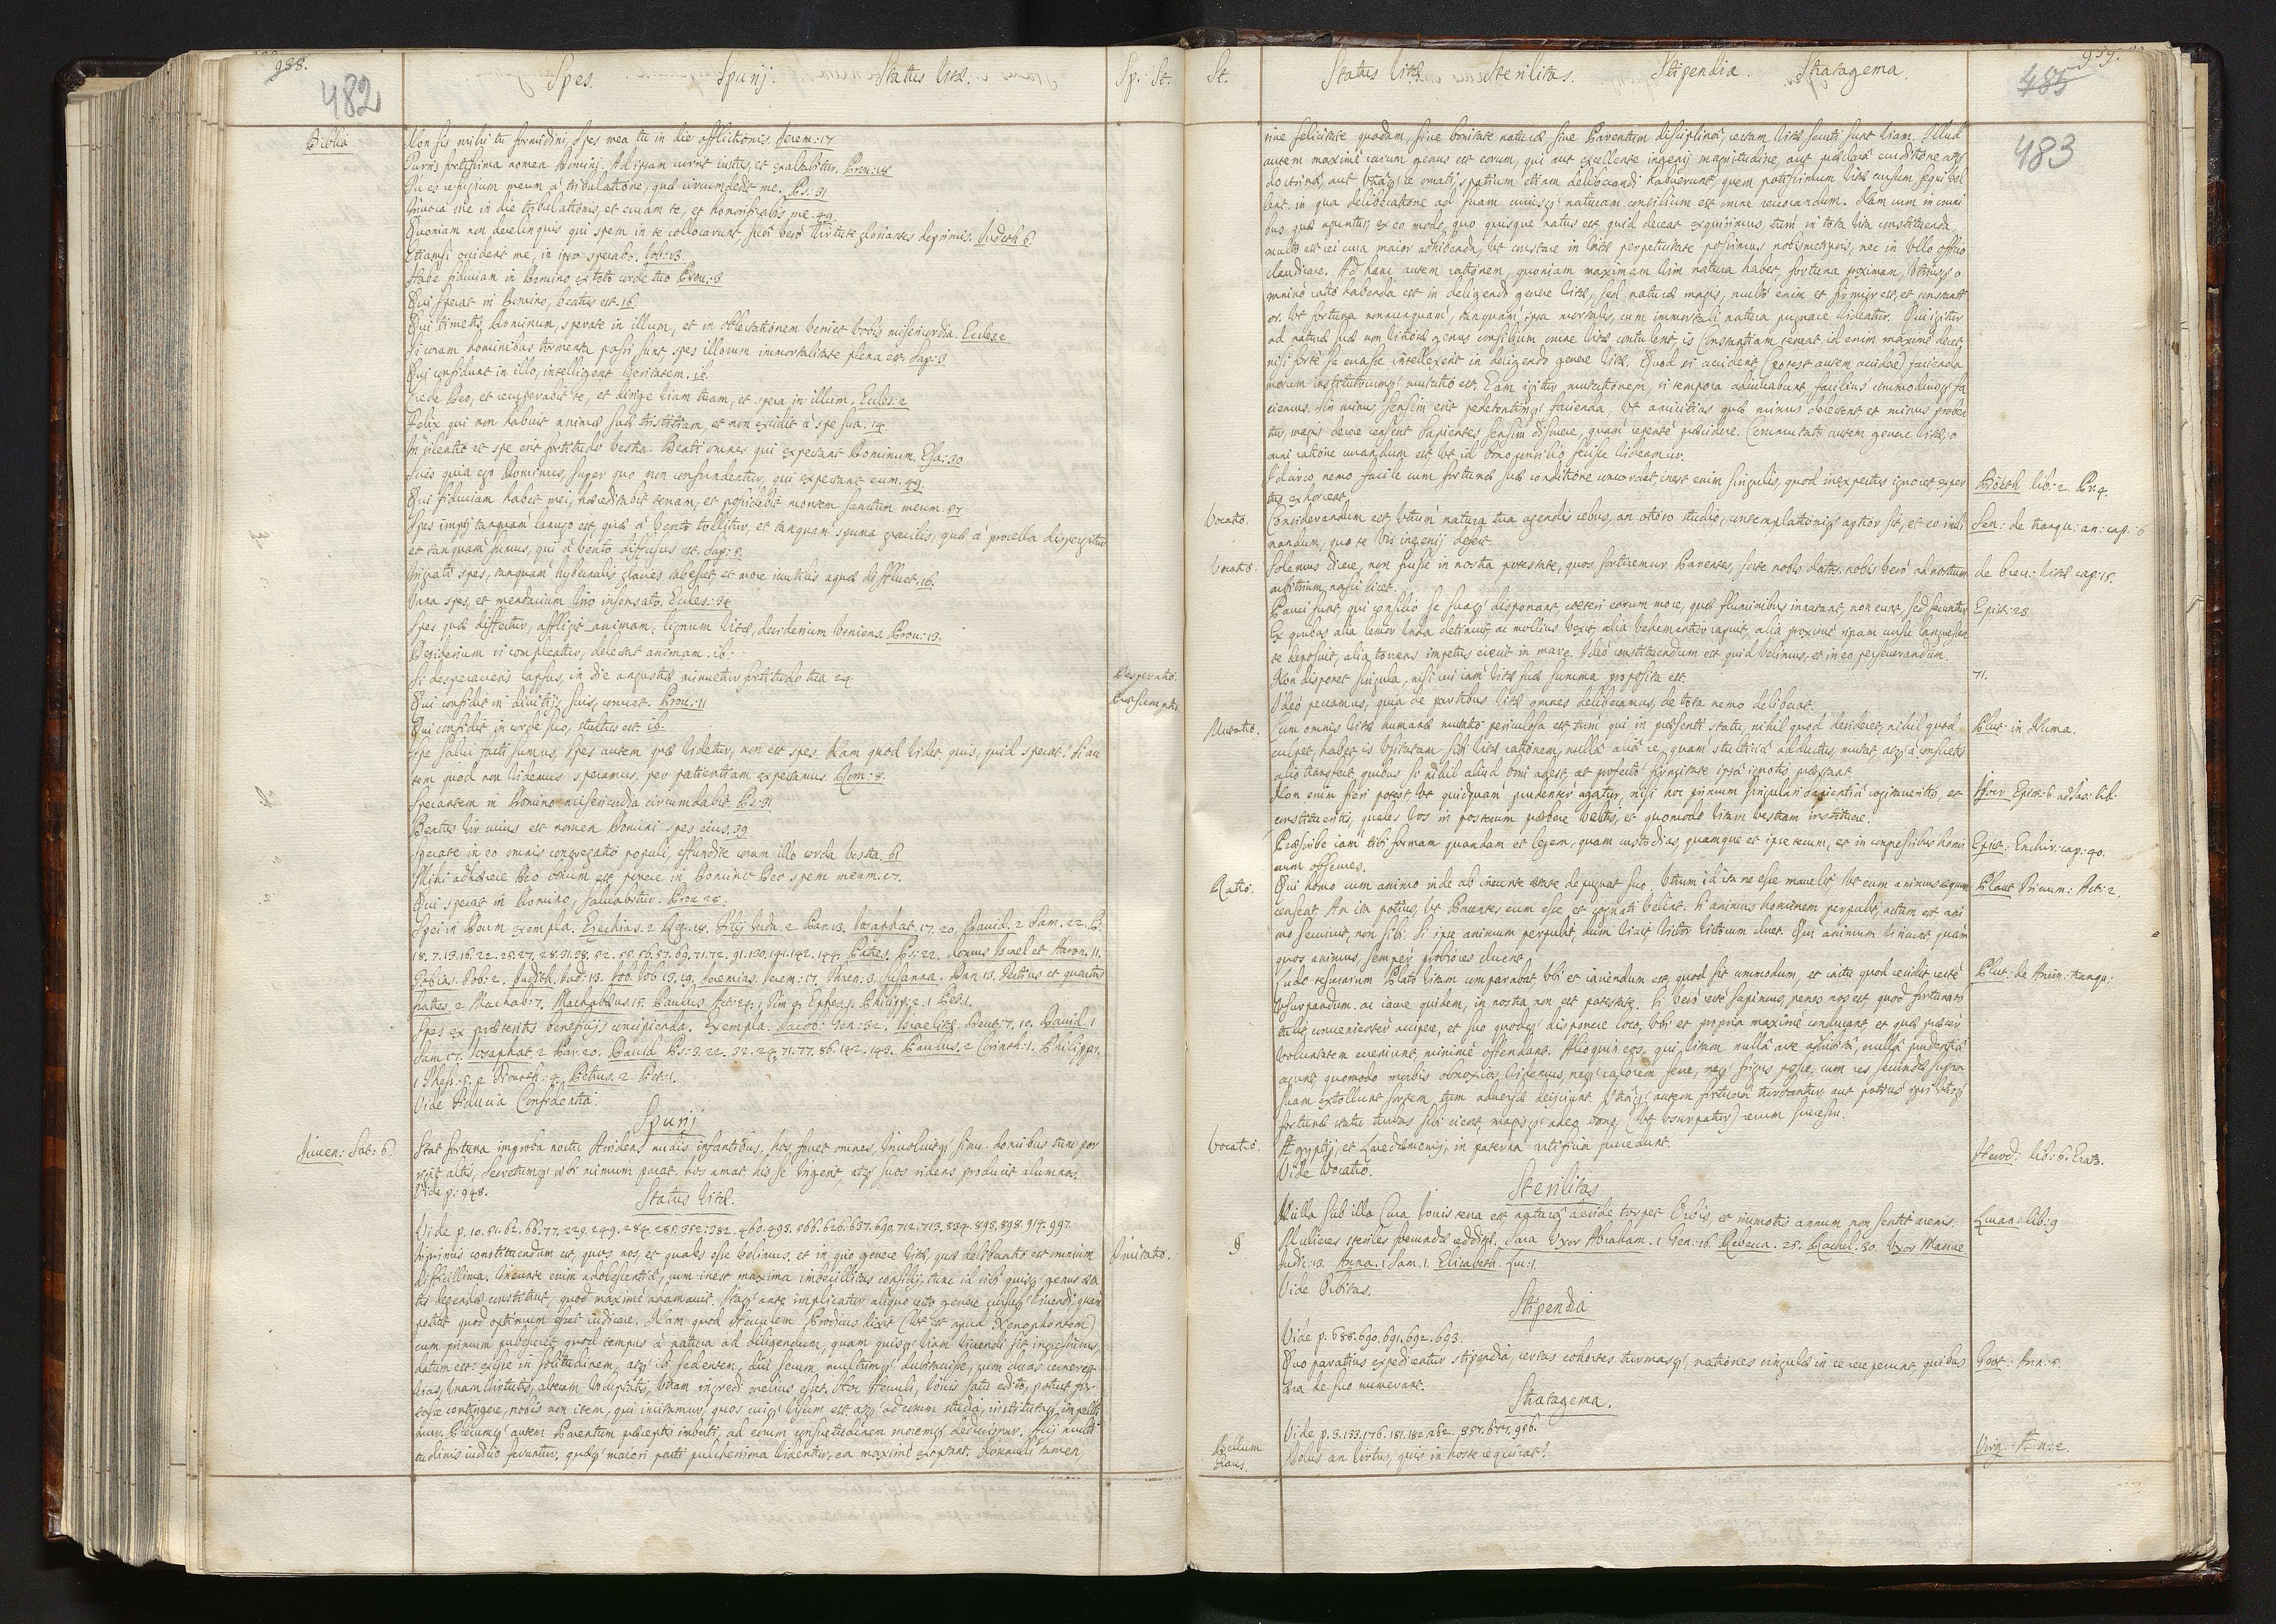 988.
482
Spes. Spurij. Status Vitæ. Sp. St.
Biblia
Non sis mihi tu formidini, Spes mea tu in die afflictionis. Jerem: 17
Turris fortissima nomen Domini. Ad ipsam currit iustus, et exaltabitur. Prou: 18
Tu es refugium meum à tribulatione, quæ circumdedit me. Ps: 31
Inuoca me in die tribulationis, et eruam te, et honorificabis me. 49.
Quoniam non derelinquis qui spem in te collocarunt, sicut verò virtute gloriantes deprimis. Judith 6.
Etiamsi occideret me, in ipso sperabo. Iob: 13.
Habe fiduciam in Domino ex toto corde tuo Prou: 3
Qui sperat in Domino, beatus est. 16.
Qui timetis Dominum, sperate in illum, et in oblectationem veniet vobis misericordia. Eccles: 2
Si coram hominibus tormenta passi sunt, spes illorum immortalitate plena est. Sap: 3
Qui confidunt in illo, intelligent veritatem. ib.
Crede Deo, et recuperabit te, et dirige viam tuam, et spera in illum. Eccles: 2
Felix qui non habuit animi sui tristitiam, et non excidit à spe sua. 14
In silentio et spe erit fortitudo vestra. Beati omnes qui expectant Dominum. Esa: 30
Scies quia ego Dominus, super quo non confundentur, qui expectant eum. 49.
Qui fiduciam habet mei, hæreditabit terram, et possidebit montem sanctum meum. 57
Spes impij tanquam lanugo est, quæ à vento tollitur, et tanquam spuma gracilis, quæ à procella dispergitur
et tanquam fumus, qui à vento diffusus est. Sap: 5.
Ingrati spes, tanquam hybernalis glacies tabescet, et more inutilis aquæ diffluet. 16.
Vana spes, et mendacium viro insensato. Eccles: 34
Spes quæ differtur, affligit animam, lignum vitæ, desiderium veniens. Prou: 13.
Desiderium si compleatur, delectat animam. ib.
Si desperaueris lapsus, in die angustiæ minuetur fortitudo tua 24
Desperatio.
Qui confidit in diuitijs suis, corruet. Prou: 11
Præsumptio.
Qui confidit in corde suo, stultus est. ib.
Spe salui facti sumus, spes autem quæ videtur, non est spes. Nam quod videt quis, quid sperat? Si au
tem quod non videmus speramus, per patientiam expectamus. Rom: 8.
Sperantem in Domino misericordia circumdabit. Ps: 31
Beatus vir cuius est nomen Domini spes eius. 39
Sperate in eo omnis congregatio populi, effundite coram illo corda vestra. 61
Mihi adhærere Deo bonum est, ponere in Domino Deo spem meam. 27.
Qui sperat in Domino, saluabitur. Prou 28.
Spei in Deum exempla. Ezechias. 2 Reg. 18. Filij Iuda. 2 Par. 13. Iosaphat. 17. 20. Dauid. 2 Sam. 22. Ps.
18. 7. 13. 16. 22. 25. 27. 28. 31. 38. 52. 55. 56. 57. 69. 71. 72. 91. 130. 141. 142. 144. Patres. Ps: 22. Domus Israel et Aaron. 11.
Tobias. Tob: 2. Judith. Iud: 13. Iob. Iob 13. 19. Ieremias. Ierem: 17. Thren. 3. Susanna. Dan 13.
fratres. 2 Machab: 7. Machabæus. 15. Paulus Act: 24. 1 Tim 4. Ephes. 1. Philipp: 2. 1 Pet. 1.
Spes ex præteritis beneficijs concipienda. Exempla. Iacob: Gen: 32. Israelitæ. Deut: 7. 10. Dauid. 1
Sam. 17. Iosaphat. 2 Par. 20. Dauid Ps: 3. 22. 32. 24. 71. 77. 86. 142. 143. Paulus. 2 Corinth: 1. Philipp:
1 Thess: 5. 2 Timoth: 4. Petrus. 2 Pet: 1.
Vide Fiducia Confidentia.
Spurij
Juuen: Sat: 6
Stat fortuna improba noctu Arridens nudis infantibus. hos fouet omnes, Inuoluitq; sinu. domibus tunc por
rigit altis, Secretumq; sibi mimum parat. hos amat his se Ingerit, atq; suos ridens producit alumnos.
Vide p: 948.
Status Vitæ.
Vide p. 10. 51. 62. 66. 77. 229. 249. 284. 285. 352. 382. 460. 493. 566. 626. 637. 690. 712. 713. 834. 893. 898. 914. 997.
Imprimis constituendum est, quos nos, et quales esse velimus, et in quo genere vitæ, quæ deliberatio est omnium
Imitatio.
difficillima. Ineunte enim adolescentia, cum inest maxima imbecillitas consilij, tunc id sibi quisq; genus æta
tis degendæ constituit, quod maximè adamauit. Itaq; ante implicatur aliquo certo genere cursuq; viuendi, quàm
potuit quod optimum esset iudicare. Nam quod Herculem Prodicus dixit (ut est apud Xenophontem)
cum primum pubesceret, quod tempus à natura ad deligendum, quam quisq; viam viuendi sit ingressurus,
datum est: exisse in solitudinem, atq; ibi sedentem, diu secum, multumq; dubitasse, cum duas cerneret
vias, vnam virtutis, alteram Voluptatis, vtram ingredi melius esset. Hoc Herculi, Iouis satu edito, potuit for
tasse contingere, nobis non item, qui imitamur, quos cuiq; visum est. atq; ad eorum studia, institutaq; impelli
mur. Plerumq; autem Parentum præceptis imbuti, ad eorum consuetudinem moremq; deducimur. Alij multi
tudinis iudicio feruntur, quæq; maiori parti pulcherrima videntur, ea maximè exoptant. Nonnulli tamen,
St. Status Vitæ Sterilitas. Stipendia. Stratagema.
959.
485
483
siue felicitate quadam, siue bonitate naturæ siue Parentum disciplina, rectam vitæ secuti sunt viam. Illud
autem maximè rarum genus est eorum, qui aut excellente ingenij magnitudine, aut præclara eruditione atq;
doctrina, aut vtraq; re ornati, spatium etiam deliberandi habuerunt, quem potissimum vitæ cursum sequi vel
lent. in qua deliberatione ad suam cuiusq; naturam consilium est omne reuocandum. Nam cum in omni
bus quæ aguntur, ex eo modo, quo quisque natus est, quid deceat exquirimus, tum in tota vita constituenda,
multo est ei cura maior adhibenda, vt constare in vitæ perpetuitate possimus nobismetipsis, nec in vllo officio
claudicare. Ad hanc autem rationem, quoniam maximam vim natura habet, fortuna proximam, vtriusq; o
mnino ratio habenda est in deligendo genere vitæ, sed naturæ magis, multo enim et firmior est, et constanti
or. Vt fortuna nonnunquam, tanquam ipsa mortalis, cum immortali natura pugnare videatur. Qui igitur
ad naturæ suæ non vitiosæ genus consilium omne vitæ contulerit, is Constantiam teneat, id enim maximè decet,
nisi fortè se errasse intellexerit in deligendo genere vitæ. Quod si acciderit (potest autem accidere) facienda
morum institutorumq; mutatio est. Eam igitur mutationem, si tempora adiuuabunt, facilius commodiusq; fa
ciemus. Sin minus, sensim erit pedetentimq; facienda, vt amicitias quæ minus delectent et minus proben
tur, magis decere censent Sapientes sensim dissuere, quàm repentè præcidere. Commutato autem genere vitæ, o
mni ratione curandum est vt id bono consilio fecisse videamur.
Idcirco nemo facile cum fortunæ suæ conditione concordat, inest enim singulis, quod inexpertus ignoret, exper
Böeth lib: 2. Pr: 4.
tus exhorreat.
Vocatio.
Considerandum est, vtrum natura tua agendis rebus, an otioso studio, contemplationiq; aptior sit, et eo incli
Sen: de tranqu: an: cap: 6
nandum, quo te vis ingenij defert.
Vocatio.
Solemus dicere, non fuisse in nostra potestate, quos sortiremur Parentes, sorte nobis datos. nobis verò ad nostrum
de breu: vitæ cap: 15.
arbitrium nasci licet.
Pauci sunt, qui consilio se suaq; disponant, cæteri eorum more, quæ fluminibus innatant, non eunt, sed feruntur
Epist: 23.
Ex quibus alia lenior vnda detinuit, ac mollius vexit, alia vehementior rapuit, alia proximè ripam cursu languescen
te deposuit, alia torrens impetus eiecit in mare. Ideò constituendum est quid velimus, et in eo perseuerandum.
Non disponet singula, nisi cui iam vitæ suæ summa proposita est.
71.
Ideò peccamus, quia de partibus vitæ omnes deliberamus, de tota nemo deliberat.
Mutatio.
Cum omnis vitæ humanæ mutatio periculosa est, tum qui in præsenti statu, nihil quod desideret, nihil quod
Plut: in Numa.
culpet, habet, is vsitatam sibi vitæ rationem, nullâ aliâ re, quàm stultitia adductus, mutat, atq; à consuetis
alio transfert, quibus si nihil aliud boni adest, at profectò firmitate ipsâ ignotis præstant.
Non enim fieri potest, vt quidquam prudenter agatur, nisi hoc primum singulari sapientia cogimueritis, et
Isocr Epist: 6 ad Jas: lib.
constitueritis, quales vos in posterum præbere velitis, et quomodo vitam vestram instituere.
Præscribe iam tibi formam quandam et legem, quam custodias, quamque et ipse tecum, et in congressibus homi
Epict: Enchir: cap: 40.
num obserues.
Ratio.
Qui homo cum animo inde ab ineunte ætate depugnat suo, Vtrum id ita ne esse mauelit vt eum animus æquum
Plaut Trinum: Act: 2.
censeat An ita potius, vt Parentes eum esse et cognati velint. Si animus hominem perpulit, actum est ani
mo seruiuit, non sibi. Si ipse animum perpulit, dum viuit victor victorum cluet. Qui animum vincunt, quàm
quos animus, semper probiores cluent.
Ludo tesserarum Plato vitam comparabat, vbi et iaciendum est, quod sit commodum, et iactu quod cecidit rectè
Plut: de Anim: tranqu:
vsurpandum. ac iacere quidem, in nostra non est potestate. Si verò rectè sapimus, penes nos est quod fortunâ
tulit, conuenienter accipere, et suo quodq; disponere loco, vbi et propria maximè conducant, et quæ præter
voluntatem eueniunt, minimè offendant. Alioquin eos, qui vitam nullâ arte adhibitâ, nullâ prudentiâ
agunt, quomodo morbis obnoxios videmus, neq; calorem ferre, neq; frigus posse, cum res secundæ supra
suam extollunt sortem, tum aduersæ deijciunt. Vtraq; autem fortuna turbantur, aut potius ipsi vtroq;
fortunæ statu turbas sibi cient, magisq; adeo bonæ (vt vsurpatur) rerum successu.
Vocatio.
Ægyptij, et Lacedæmonij, in paterna artificia succedunt.
Herod: lib: 6. Erato.
Vide Vocatio.
Sterilitas
Illa sub illa Cura Iouis terra est, naturaq; deside torpet Orbis, et immotis annum non sentit arenis.
Lucan: lib: 9
§
Mulieres steriles fecundæ redditæ. Sara Vxor Abraham. 1 Gen: 16. Rebecca. 25. Rachel. 30. Vxor Manue
Judic: 13. Anna. 1 Sam. 1. Elisabeth. Luc: 1.
Vide Orbitas.
Stipendia
Vide p. 688. 690. 691. 692. 693.
Quo paratius expedientur stipendia, certas cohortes turmasq;, nationes singulæ in
Grot: Ann: 5.
æra de suo numerant.
Stratagema.
Vide p. 3. 133. 176. 181. 182. 262. 357. 677. 986.
Bellum
fraus.
Dolus an virtus, quis in hoste requirat?
Virg. Æn: 2.